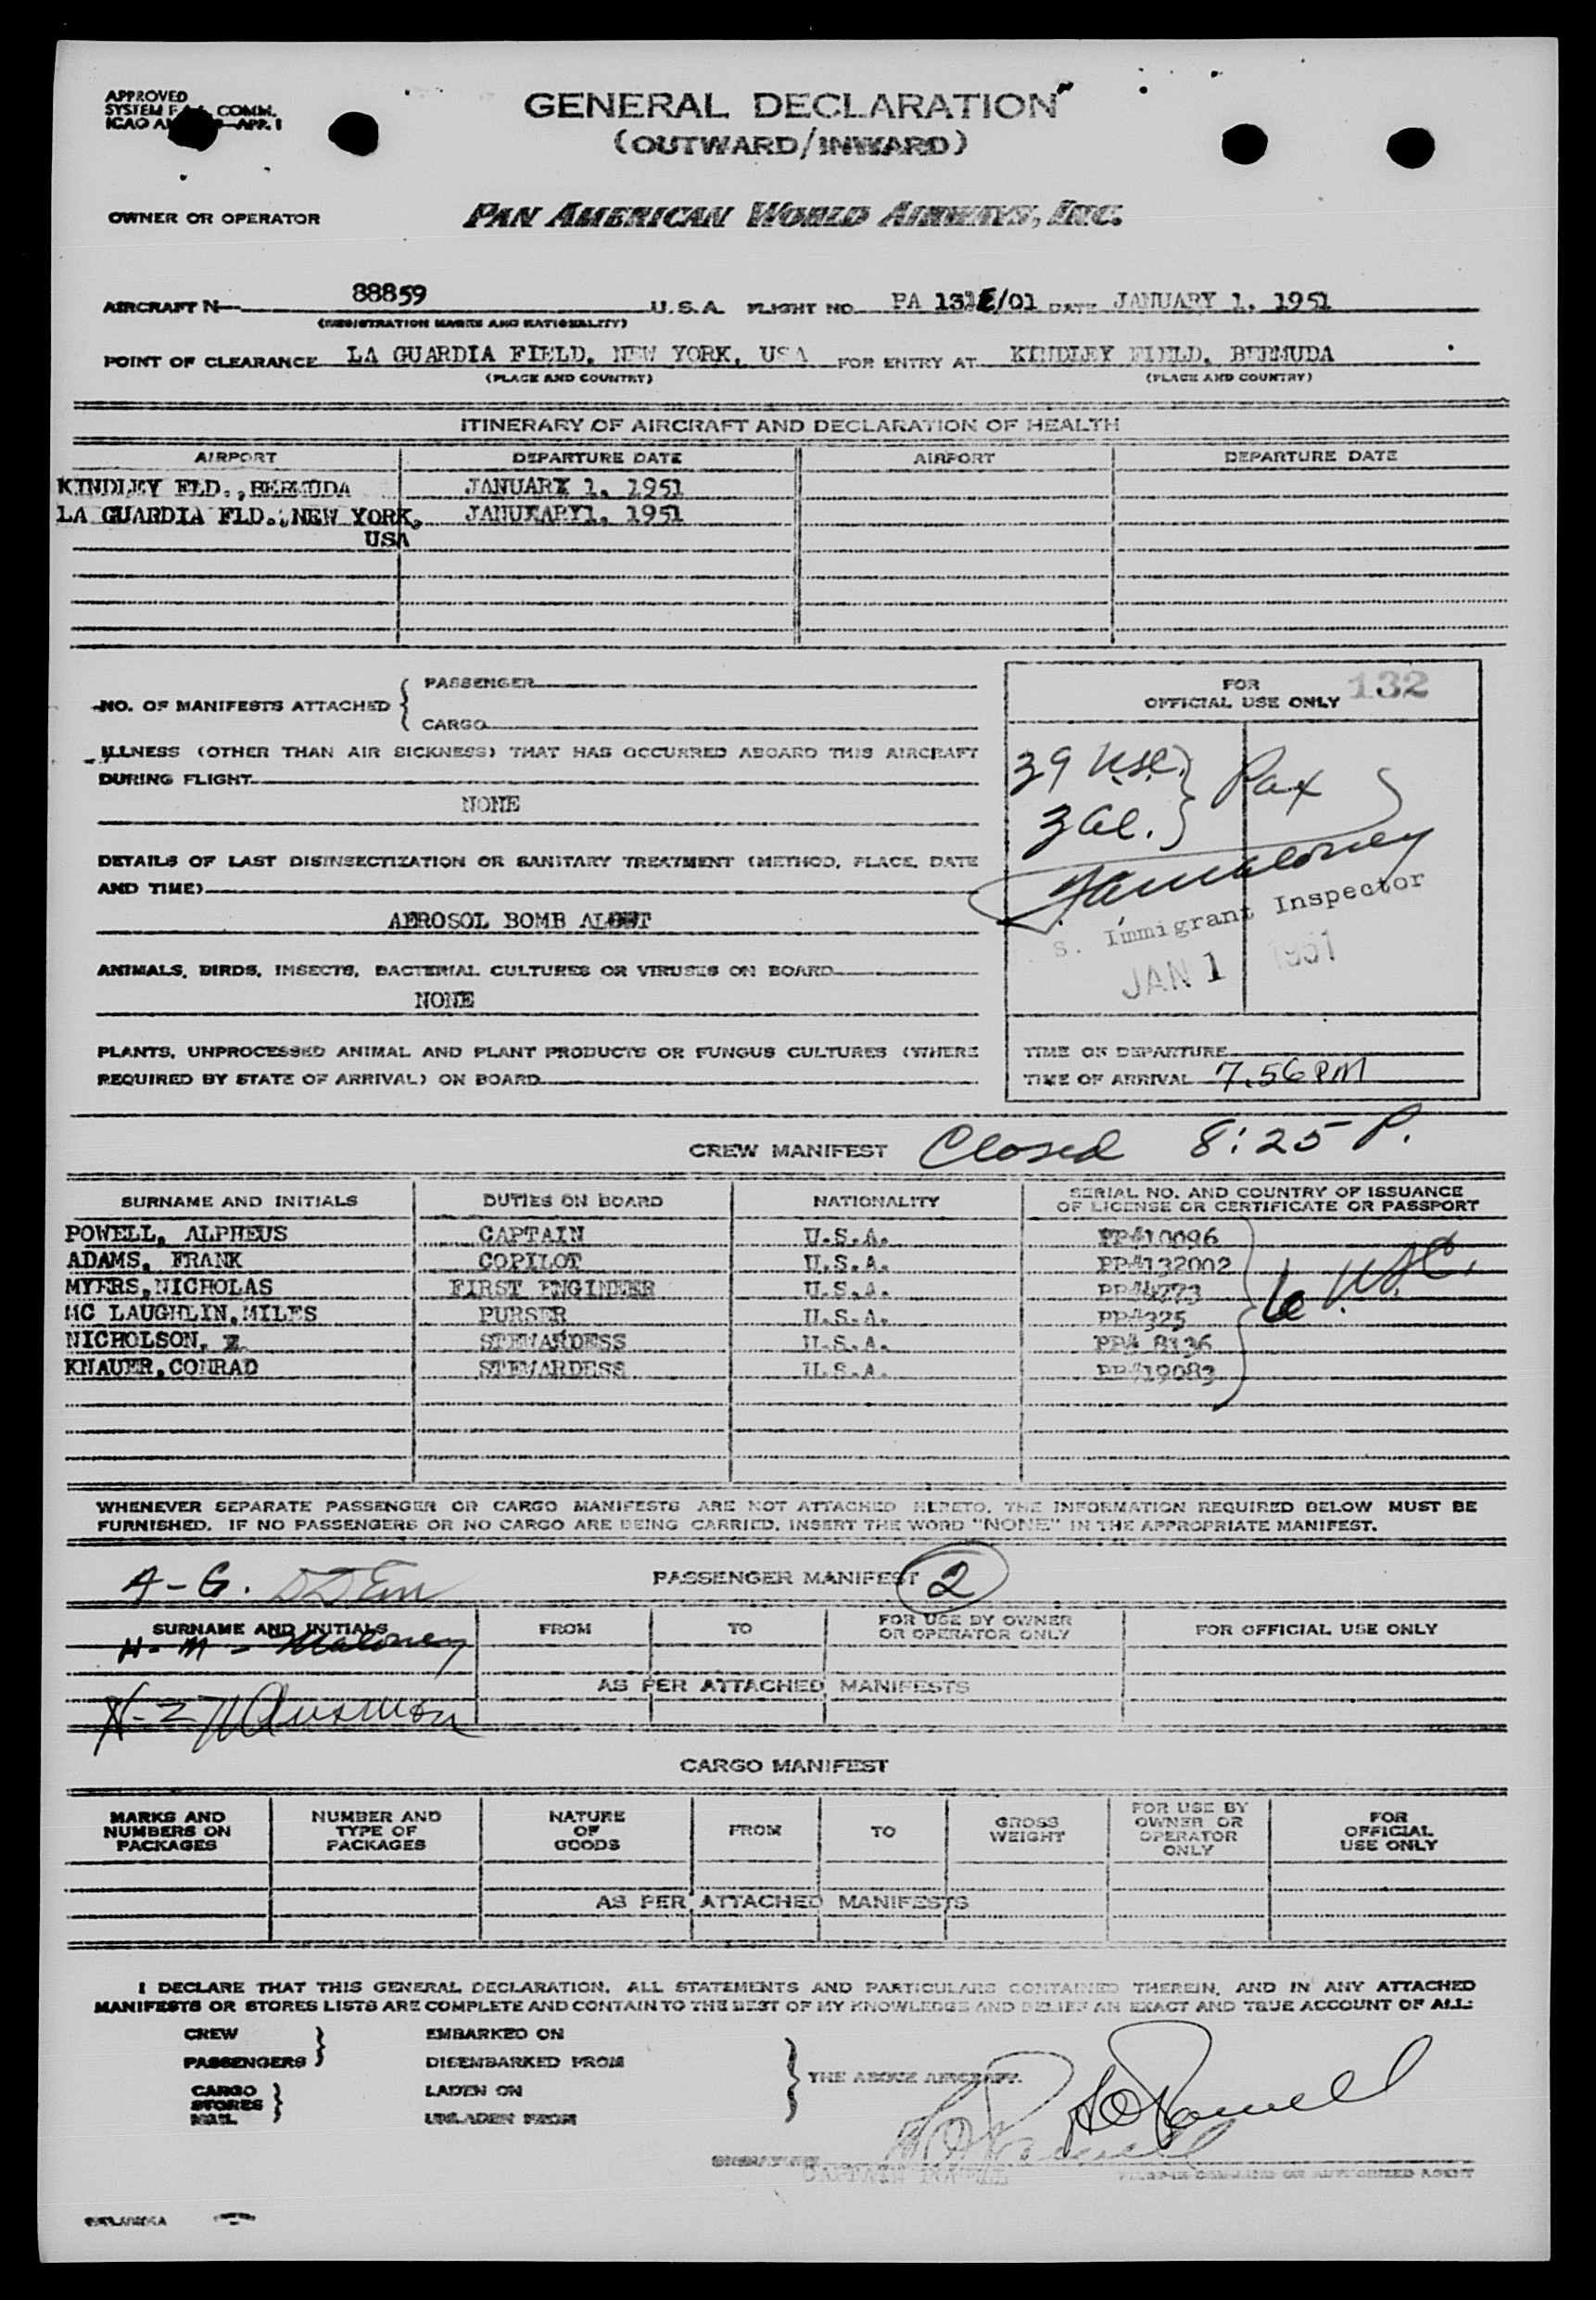 APPROVED
SYSTEM COMM.
ICAO APP. 1
GENERAL DECLARATION
(OUTWARD/INWARD)
OWNER OR OPERATOR PAN AMERICAN WORLD AIRWAYS, INC.
AIRCRAFT N- 88859 U.S.A. FLIGHT NO. PA 131E/01 DATE JANUARY 1, 1951
(REGISTRATION MARKS AND NATIONALITY)
POINT OF CLEARANCE LA GUARDIA FIELD, NEW YORK, USA FOR ENTRY AT KINDLEY FIELD, BERMUDA
(PLACE AND COUNTRY) (PLACE AND COUNTRY)
ITINERARY OF AIRCRAFT AND DECLARATION OF HEALTH
AIRPORT DEPARTURE DATE AIRPORT DEPARTURE DATE
KINDLEY FLD., BERMUDA JANUARY 1, 1951
LA GUARDIA FLD., NEW YORK, JANUXARY1, 1951
USA
NO. OF MANIFESTS ATTACHED { PASSENGER
CARGO
FOR
OFFICIAL USE ONLY 132
ILLNESS (OTHER THAN AIR SICKNESS) THAT HAS OCCURRED ABOARD THIS AIRCRAFT
DURING FLIGHT
NONE
39 USC. } Pax
3 al.
DETAILS OF LAST DISINSECTIZATION OR SANITARY TREATMENT (METHOD, PLACE, DATE
AND TIME)
AEROSOL BOMB
Maloney
S. Immigrant Inspector
JAN 1 1951
ANIMALS, BIRDS, INSECTS, BACTERIAL CULTURES OR VIRUSES ON BOARD
NONE
PLANTS, UNPROCESSED ANIMAL AND PLANT PRODUCTS OR FUNGUS CULTURES (WHERE
REQUIRED BY STATE OF ARRIVAL) ON BOARD
TIME OF DEPARTURE
TIME OF ARRIVAL 7.56 PM
CREW MANIFEST Closed 8:25 P.
SURNAME AND INITIALS DUTIES ON BOARD NATIONALITY SERIAL NO. AND COUNTRY OF ISSUANCE
OF LICENSE OR CERTIFICATE OR PASSPORT
POWELL, ALPHEUS CAPTAIN U.S.A. PP#10096
ADAMS, FRANK COPILOT U.S.A. PP#132002
MYERS, NICHOLAS FIRST ENGINEER U.S.A. PP#4773
MC LAUGHLIN, MILES PURSER U.S.A. PP#325
NICHOLSON, STEWARDESS U.S.A. PP# 8136
KNAUER, CONRAD STEWARDESS U.S.A. PP#19083
6 USC.
WHENEVER SEPARATE PASSENGER OR CARGO MANIFESTS ARE NOT ATTACHED HERETO, THE INFORMATION REQUIRED BELOW MUST BE
FURNISHED. IF NO PASSENGERS OR NO CARGO ARE BEING CARRIED, INSERT THE WORD "NONE" IN THE APPROPRIATE MANIFEST.
A-G. PASSENGER MANIFEST 2
SURNAME AND INITIALS FROM TO FOR USE BY OWNER
OR OPERATOR ONLY FOR OFFICIAL USE ONLY
H-M- Maloney
AS PER ATTACHED MANIFESTS
N-Z
CARGO MANIFEST
MARKS AND
NUMBERS ON
PACKAGES
NUMBER AND
TYPE OF
PACKAGES
NATURE
OF
GOODS
FROM
TO
GROSS
WEIGHT
FOR USE BY
OWNER OR
OPERATOR
ONLY
FOR
OFFICIAL
USE ONLY
AS PER ATTACHED MANIFESTS
I DECLARE THAT THIS GENERAL DECLARATION, ALL STATEMENTS AND PARTICULARS CONTAINED THEREIN, AND IN ANY ATTACHED
MANIFESTS OR STORES LISTS ARE COMPLETE AND CONTAIN TO THE BEST OF MY KNOWLEDGE AND BELIEF AN EXACT AND TRUE ACCOUNT OF ALL:
CREW EMBARKED ON
PASSENGERS DISEMBARKED FROM
THE ABOVE AIRCRAFT.
CARGO LADEN ON
STORES
MAIL UNLADEN FROM
Powell
SIGNATURE
CAPTAIN
PILOT-IN COMMAND OR AUTHORIZED AGENT